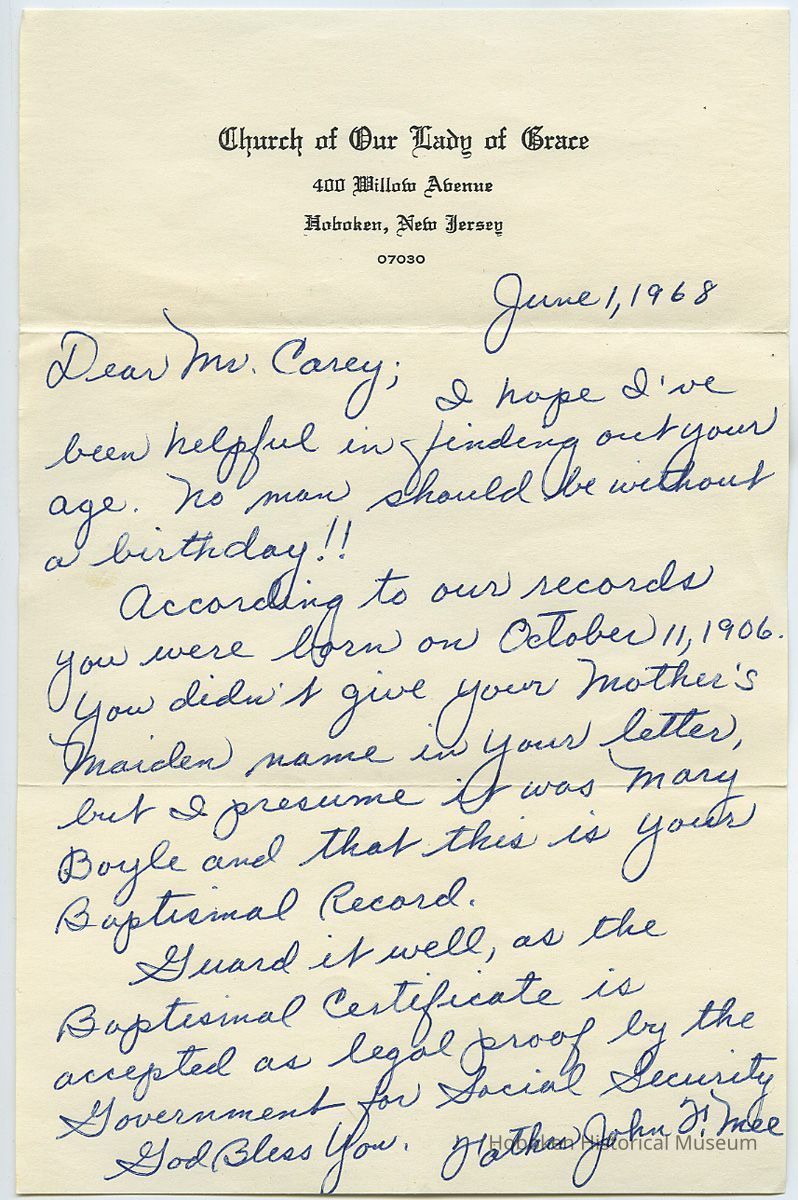 Church of Our Lady of Grace
400 Willow Avenue
Hoboken, New Jersey
07030
June 1, 1968
Dear Mr. Carey;
I hope I've
been helpful in finding out your
age. No man should be without
a birthday!!
According to our records
you were born on October 11, 1906.
You didn't give your Mother's
Maiden name in your letter,
but I presume it was Mary
Boyle and that this is your
Baptismal Record.
Guard it well, as the
Baptismal Certificate is
accepted as legal proof by the
Government for Social Security
God Bless You. Father John F. Mee
Hoboken Historical Museum